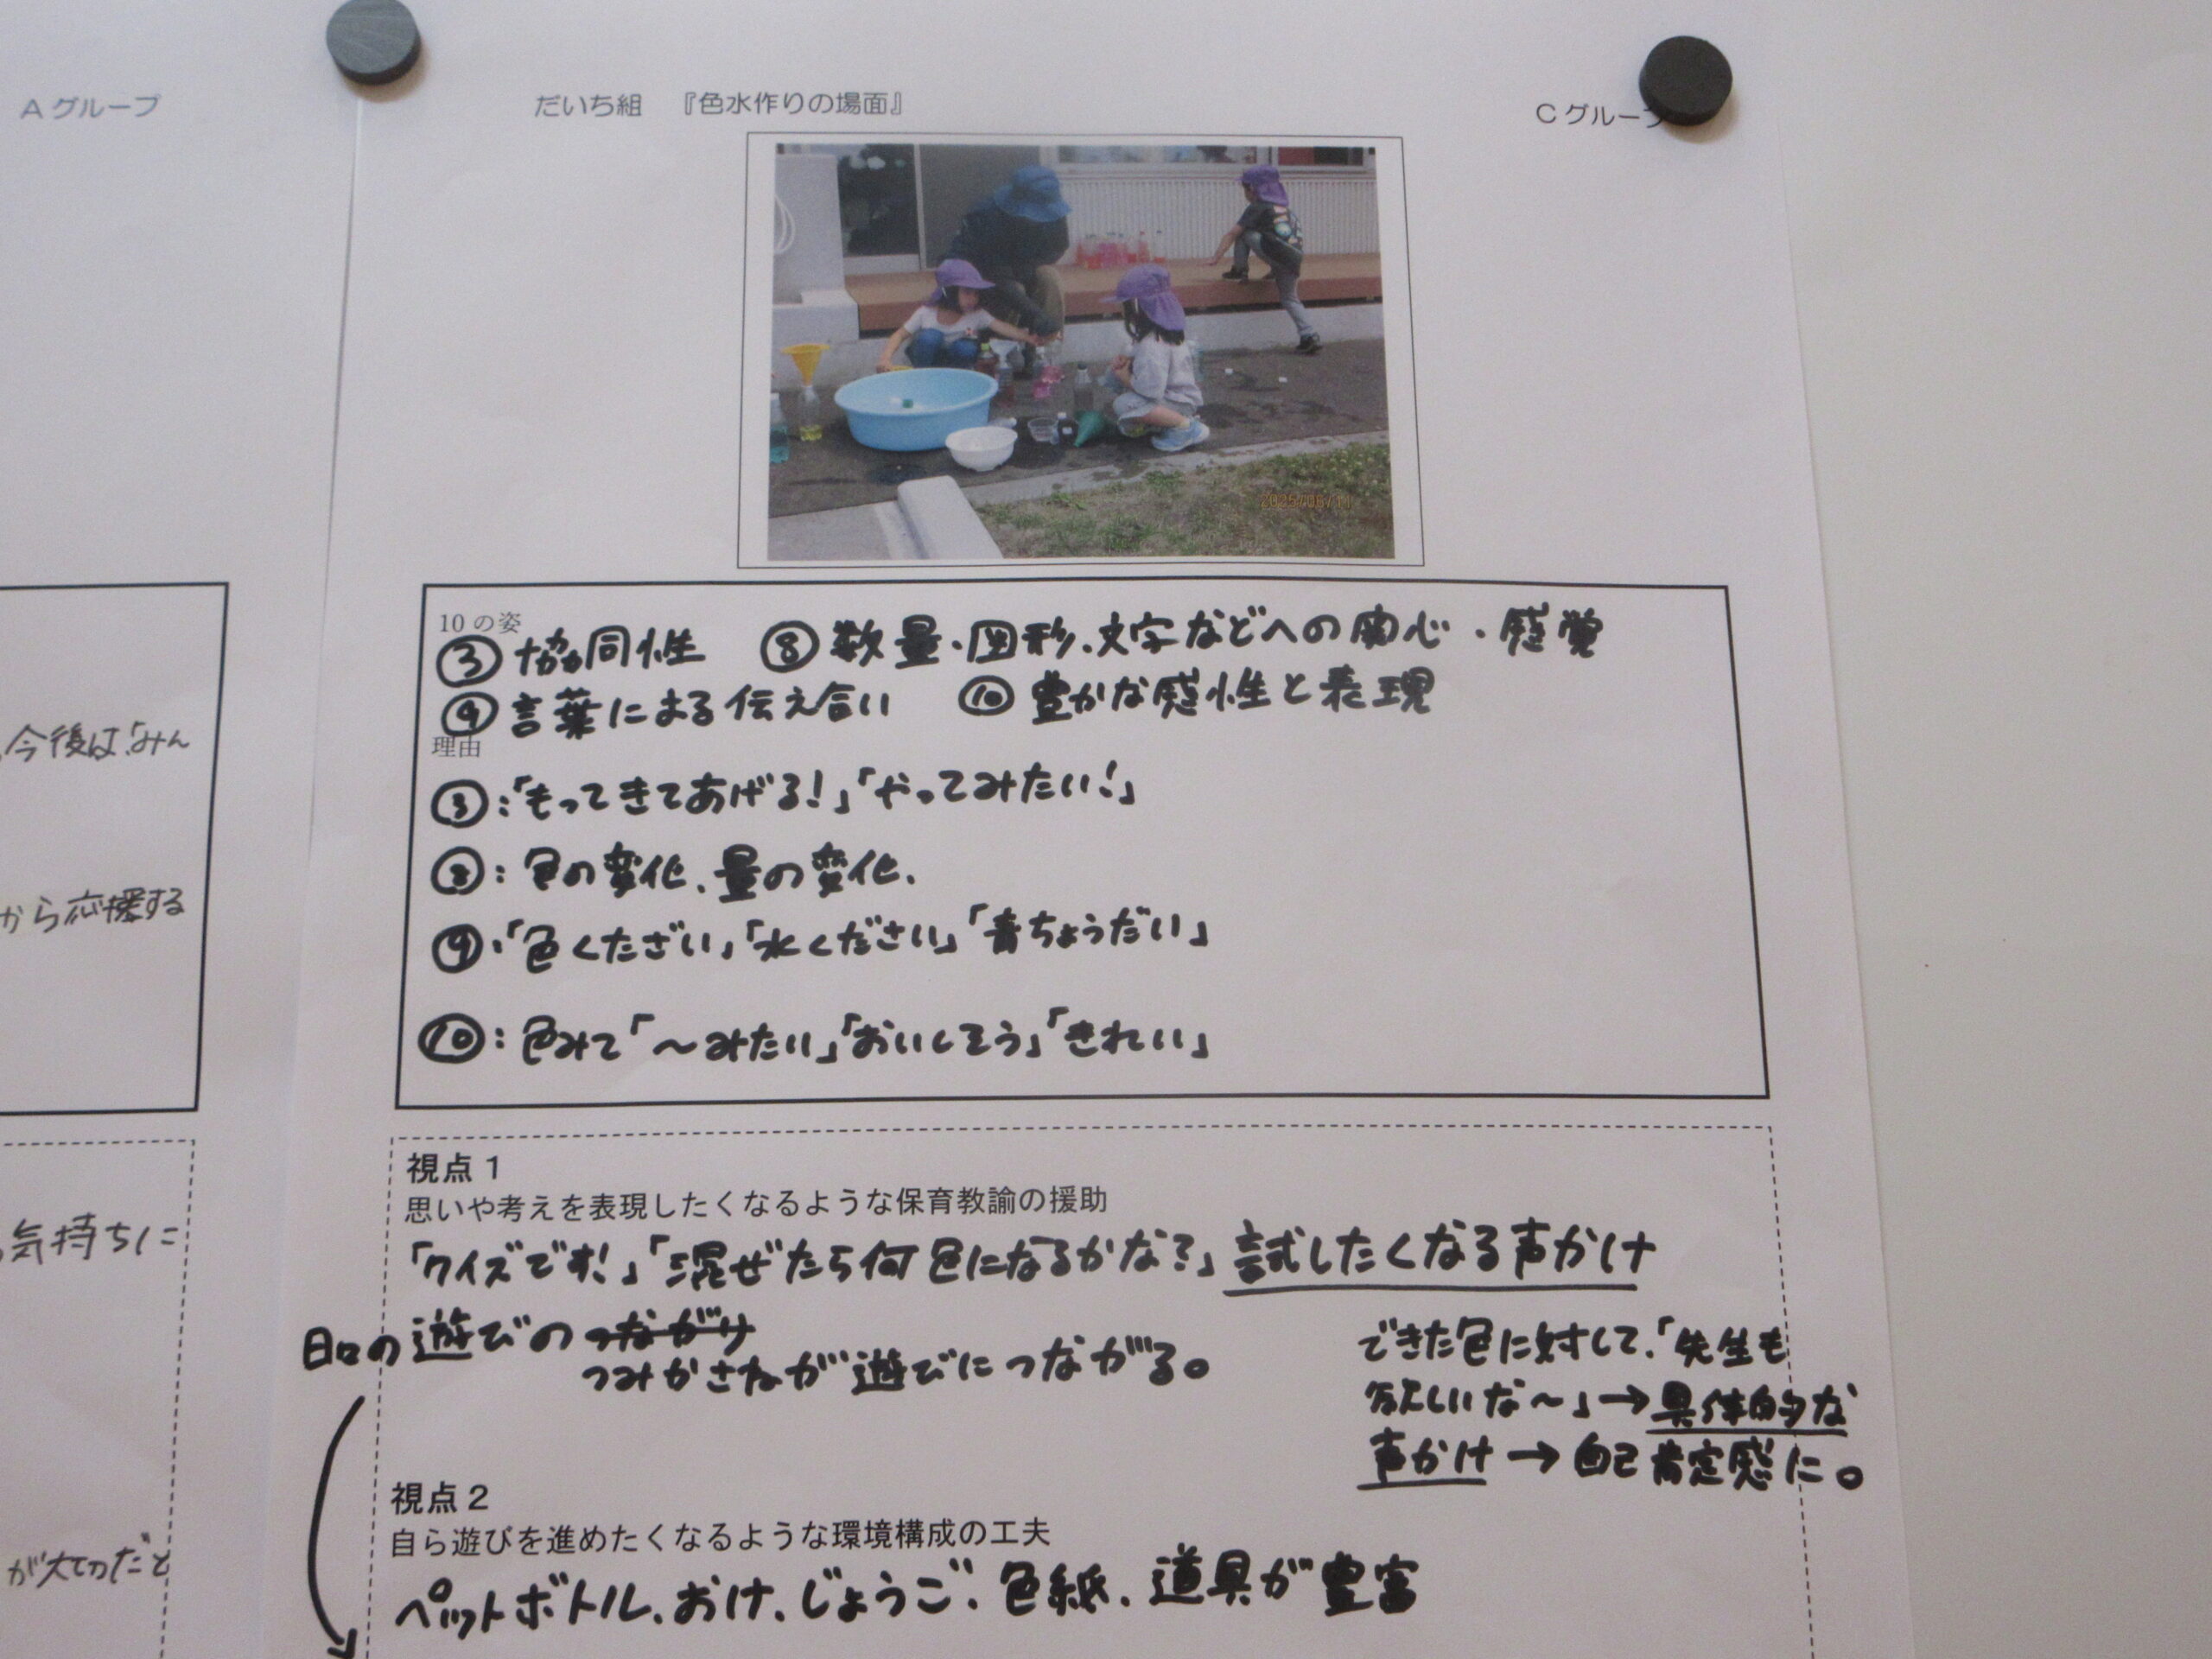 Aグループ
今後は、「みん
から応援する
気持ちに
が大切だと
だいち組　『色水作りの場面』
Cグループ
10の姿
③ 協同性　⑧ 数量・図形、文字などへの関心・感覚
⑨ 言葉による伝え合い　⑩ 豊かな感性と表現
理由
③:「もってきてあげる!」「やってみたい!」
⑧: 色の変化、量の変化、
⑨:「色くださざい」「水ください」「青ちょうだい」
⑩: 色みて「〜みたい」「おいしそう」「きれい」
視点1
思いや考えを表現したくなるような保育教諭の援助
「クイズです!」「混ぜたら何色になるかな?」試したくなる声かけ
日々の遊びのつながり
つみかさねが遊びにつながる。
できた色に対して、「先生も
欲しいな〜」→具体的な
声かけ→自己肯定感に。
視点2
自ら遊びを進めたくなるような環境構成の工夫
ペットボトル、おけ、じょうご、色紙、道具が豊富